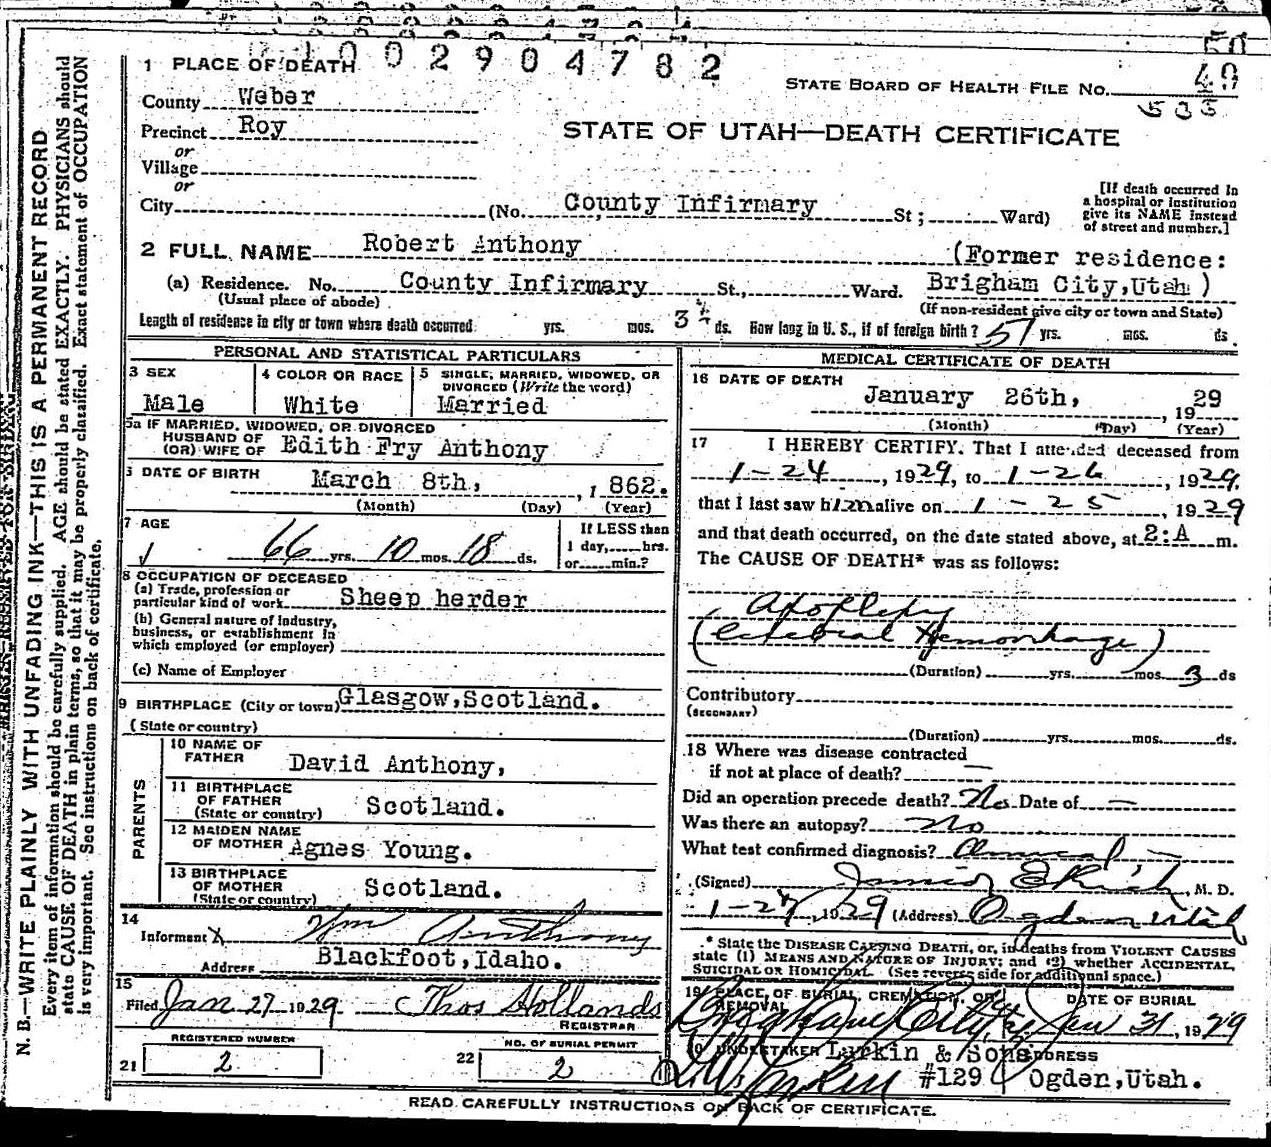 1002904782
50
1 PLACE OF DEATH
STATE BOARD OF HEALTH FILE No. 49
535
County Weber
Precinct Roy
STATE OF UTAH—DEATH CERTIFICATE
or
Village
or
City (No. County Infirmary St; Ward)
[If death occurred in a hospital or institution give its NAME instead of street and number.]
2 FULL NAME Robert Anthony (Former residence:
(a) Residence. No. County Infirmary St., Ward. Brigham City, Utah )
(Usual place of abode) (If non-resident give city or town and State)
Length of residence in city or town where death occurred yrs. mos. 3 ds. How long in U. S., if of foreign birth? 51 yrs. mos. ds.
PERSONAL AND STATISTICAL PARTICULARS
3 SEX 4 COLOR OR RACE 5 SINGLE, MARRIED, WIDOWED, OR DIVORCED (Write the word)
Male White Married
5a IF MARRIED, WIDOWED, OR DIVORCED
HUSBAND OF
(OR) WIFE OF Edith Fry Anthony
6 DATE OF BIRTH March 8th, , 1 862.
(Month) (Day) (Year)
7 AGE If LESS than
66 yrs. 10 mos. 18 ds. 1 day, hrs.
or min.?
8 OCCUPATION OF DECEASED
(a) Trade, profession or particular kind of work Sheep herder
(b) General nature of Industry, business, or establishment in which employed (or employer)
(c) Name of Employer
9 BIRTHPLACE (City or town) Glasgow, Scotland.
(State or country)
PARENTS
10 NAME OF FATHER David Anthony,
11 BIRTHPLACE OF FATHER (State or country) Scotland.
12 MAIDEN NAME OF MOTHER Agnes Young.
13 BIRTHPLACE OF MOTHER (State or country) Scotland.
14
Informent X Wm Anthony
Address Blackfoot, Idaho.
15
Filed Jan 27 1929 Thos Hollands
REGISTRAR
REGISTERED NUMBER NO. OF BURIAL PERMIT
21 2 22 2
MEDICAL CERTIFICATE OF DEATH
16 DATE OF DEATH
January 26th, , 19 29
(Month) (Day) (Year)
17 I HEREBY CERTIFY. That I attended deceased from
1-24, 1929, to 1-26, 1929.
that I last saw him alive on 1-25, 1929
and that death occurred, on the date stated above, at 2:A m.
The CAUSE OF DEATH* was as follows:
Apoplexy
(Cerebral Hemorrhage)
(Duration) yrs. mos. 3 ds
Contributory
(SECONDARY)
(Duration) yrs. mos. ds.
18 Where was disease contracted
if not at place of death? —
Did an operation precede death? No Date of —
Was there an autopsy? No
What test confirmed diagnosis? Clinical —
(Signed) Junior E Rich, M. D.
1-27, 1929 (Address) Ogden Utah
* State the DISEASE CAUSING DEATH, or, in deaths from VIOLENT CAUSES
state (1) MEANS AND NATURE OF INJURY; and (2) whether ACCIDENTAL,
SUICIDAL OR HOMICIDAL. (See reverse side for additional space.)
19 PLACE OF BURIAL, CREMATION, OR REMOVAL DATE OF BURIAL
Brigham City, Jan 31, 1929
20 UNDERTAKER Larkin & Sons ADDRESS
#129 Ogden, Utah.
READ CAREFULLY INSTRUCTIONS ON BACK OF CERTIFICATE.
N. B.—WRITE PLAINLY WITH UNFADING INK—THIS IS A PERMANENT RECORD
Every item of information should be carefully supplied. AGE should be stated EXACTLY. PHYSICIANS should
state CAUSE OF DEATH in plain terms, so that it may be properly classified. Exact statement of OCCUPATION
is very important. See instructions on back of certificate.